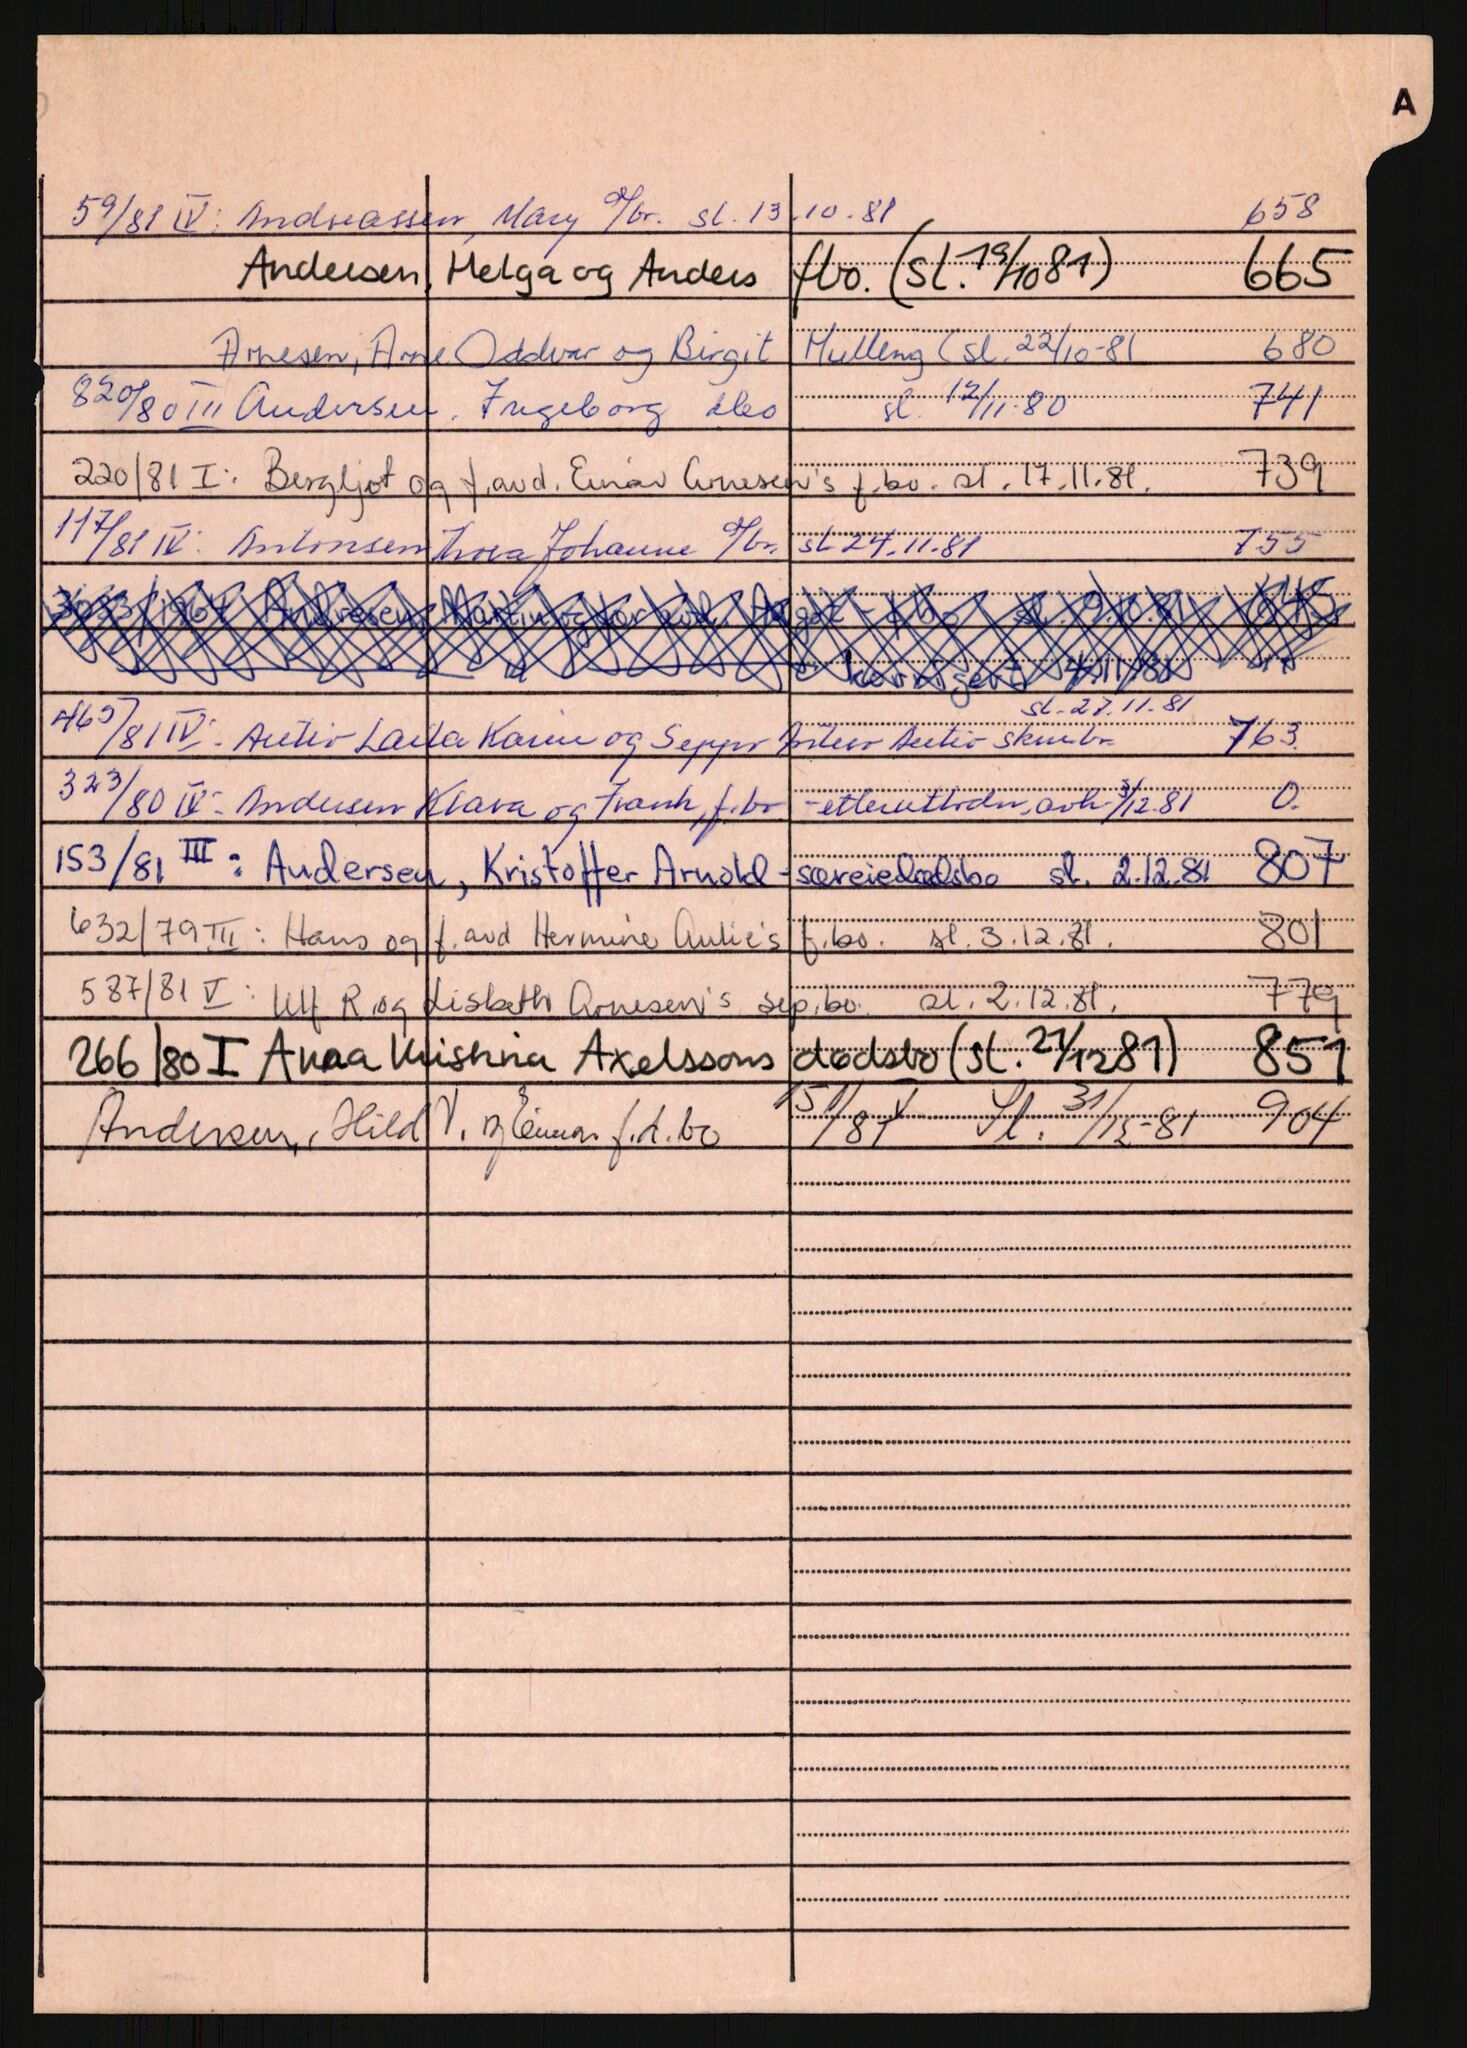 A
59/81 IV: Andreassen, Mary d/br. sl. 13.10.81 658
Andersen, Helga og Anders fbo. (sl. 19/10 81) 665
Arnesen, Arne Oddvar og Birgit Mulleng (sl. 22/10-81 680
820/80 III Andersen, Ingeborg dbo sl. 12/11-80 741
220/81 I: Bergljot og f.avd. Einar Arnesen's f.bo. sl. 17.11.81. 739
117/81 IV: Antonsen Thora Johanne d/br. sl 24.11.81 755
/1967 Andresen, Martin og sl. 9.10.81 645
korrigert 4.11.81
sl. 27.11.81
465/81 IV: Autio Laila Karin og Seppo Autio skm.br 763
323/80 IV: Andersen Klara og Frank, f.br - 3/12.81 0.
153/81 III: Andersen, Kristoffer Arnold - særeiedødsbo sl. 2.12.81 807
632/79 III: Hans og f.avd Hermine Aulie's f.bo. sl. 3.12.81. 801
587/81 V: Ulf R. og Lisbeth Arnesen's sep.bo. sl. 2.12.81. 779
266/80 I Anna Kristina Axelssons dødsbo (sl. 21/12 81) 851
Andersen, Hild V. og Einar f.d.bo 151/81 V Sl. 31/12-81 904